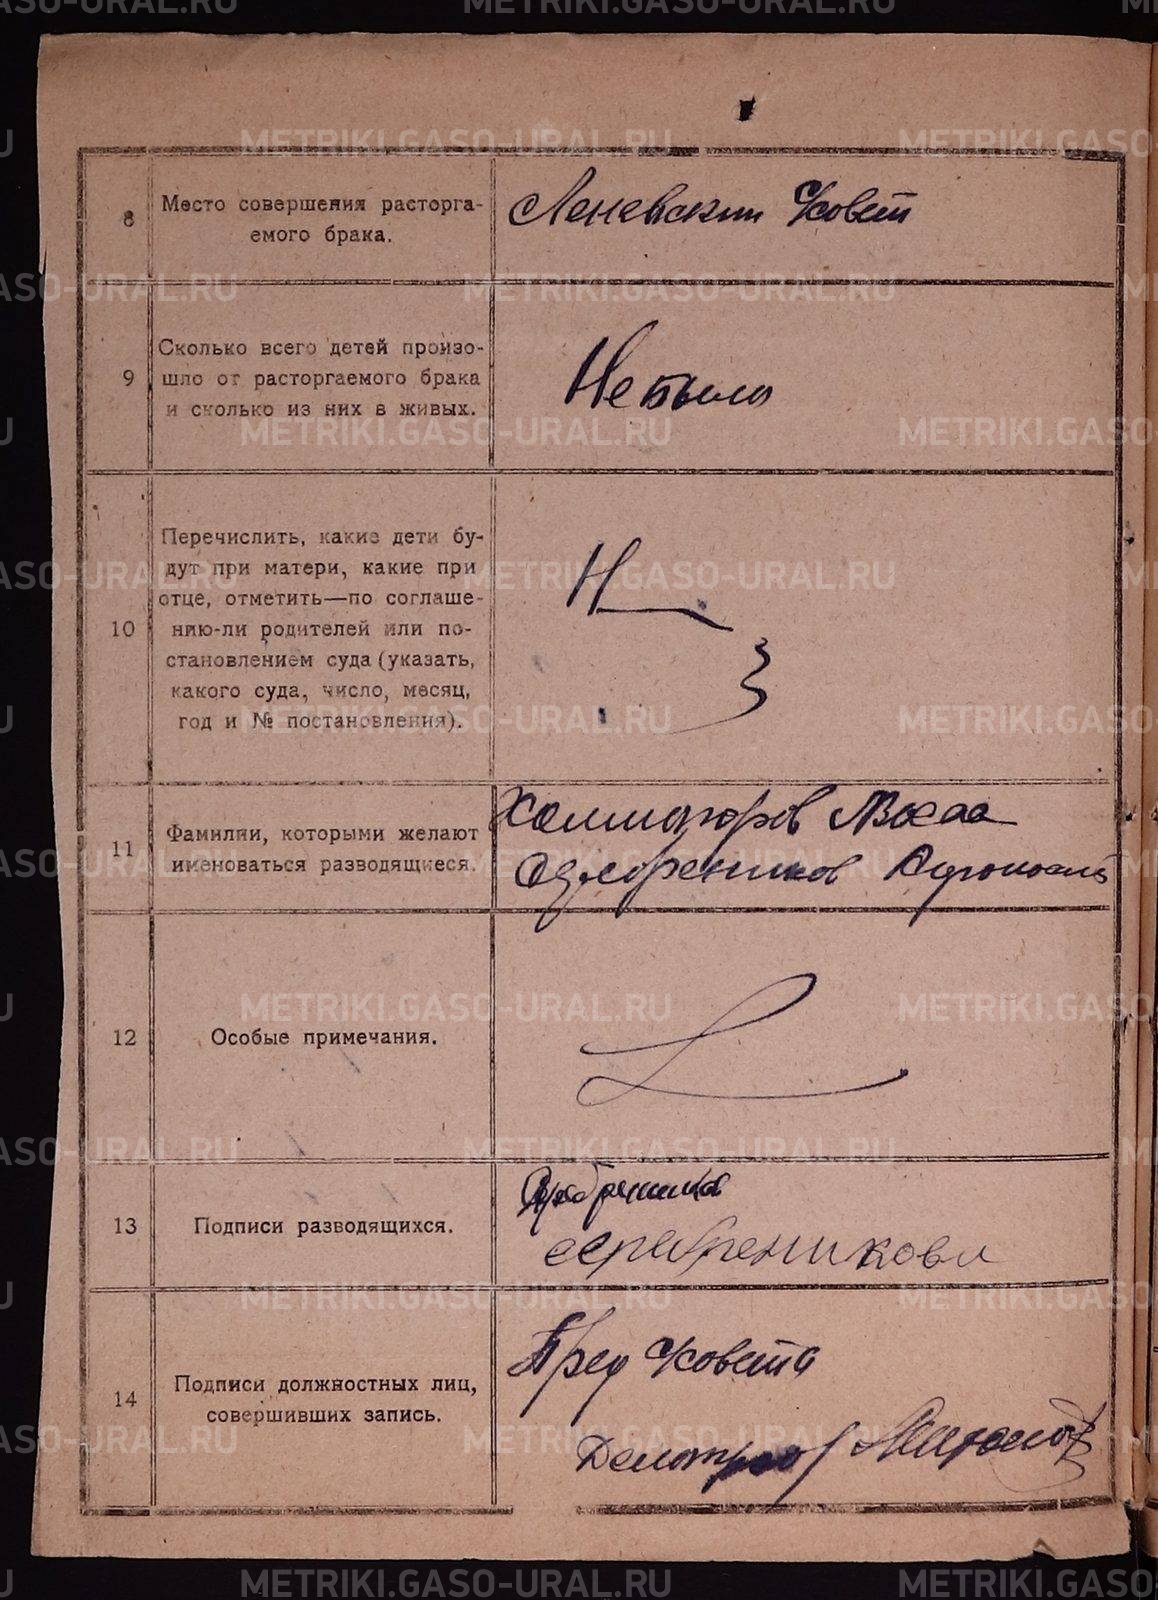 8
Место совершения расторга-
емого брака.
Леневский с/совет
9
Сколько всего детей произо-
шло от расторгаемого брака
и сколько из них в живых.
Не было
10
Перечислить, какие дети бу-
дут при матери, какие при
отце, отметить—по соглаше-
нию-ли родителей или по-
становлением суда (указать,
какого суда, число, месяц,
год и № постановления).
11
Фамилии, которыми желают
именоваться разводящиеся.
12
Особые примечания.
13
Подписи разводящихся.
Серебреникова
14
Подписи должностных лиц,
совершивших запись.
Пред с/совета
Делопр
METRIKI.GASO-URAL.RU